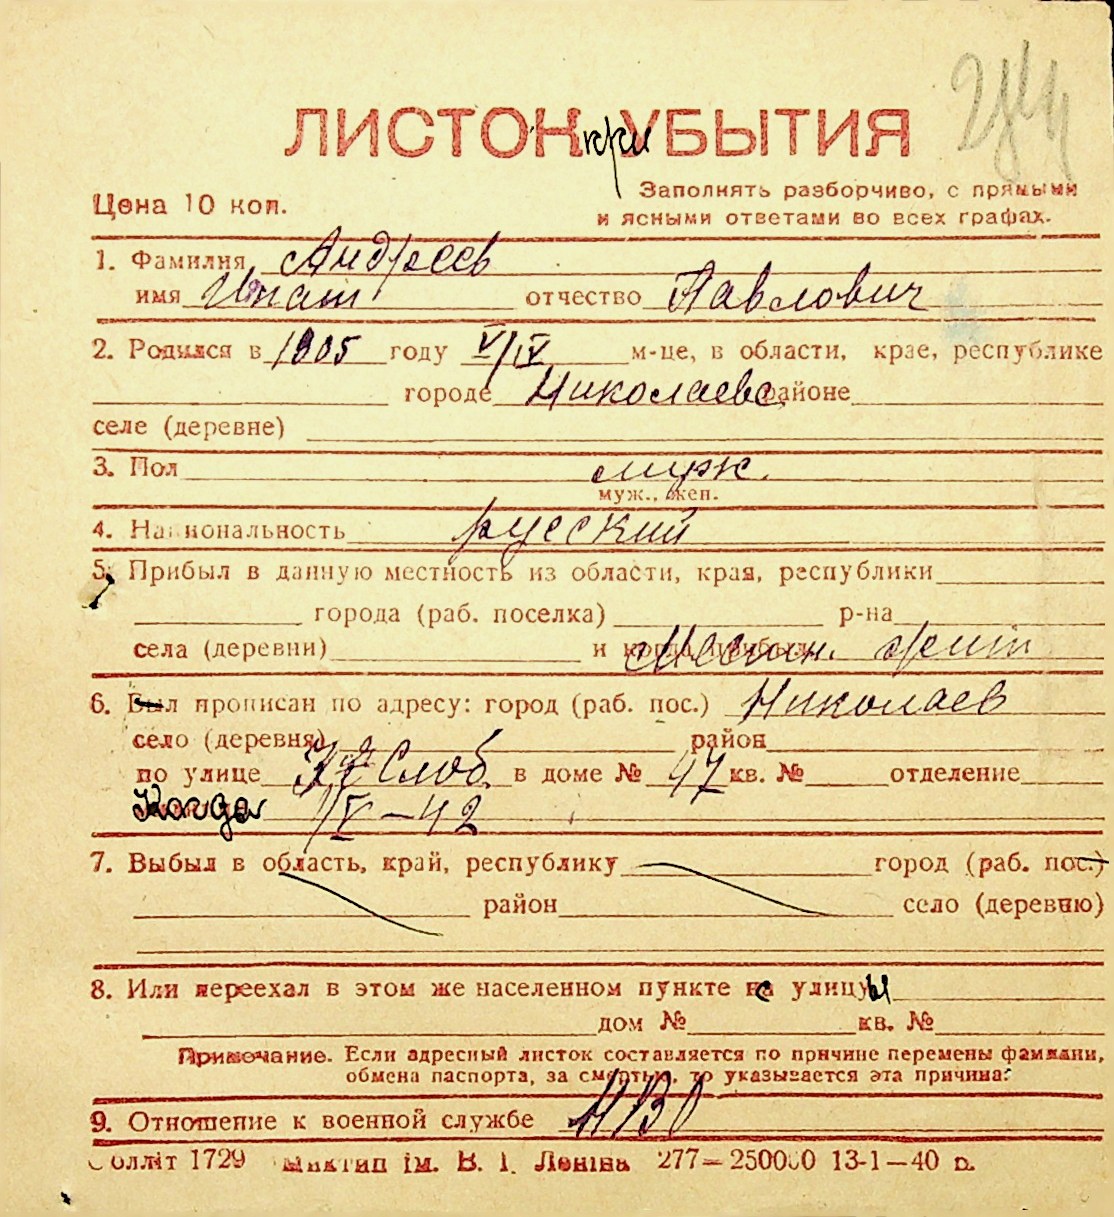 ЛИСТОК при УБЫТИЯ
Цена 10 коп.
Заполнять разборчиво, с прямыми
и ясными ответами во всех графах.
1. Фамилия Андреев
имя Игнат отчество Павлович
2. Родился в 1905 году V/IV м-це, в области, крае, республике
городе Николаеве районе
селе (деревне)
3. Пол муж.
муж., жен.
4. Национальность русский
5. Прибыл в данную местность из области, края, республики
города (раб. поселка) р-на
села (деревни) и когда прибыл Местн. жит
6. Был прописан по адресу: город (раб. пос.) Николаев
село (деревня) район
по улице Слоб. в доме № 47 кв. № отделение
Когда 1/V-42
7. Выбыл в область, край, республику город (раб. пос.)
район село (деревню)
8. Или переехал в этом же населенном пункте с улицы
дом № кв. №
Примечание. Если адресный листок составляется по причине перемены фамилии,
обмена паспорта, за смертью, то указывается эта причина.
9. Отношение к военной службе НВО
Обліт 1729 ім. В. І. Леніна 277—250000 13-1—40 р.